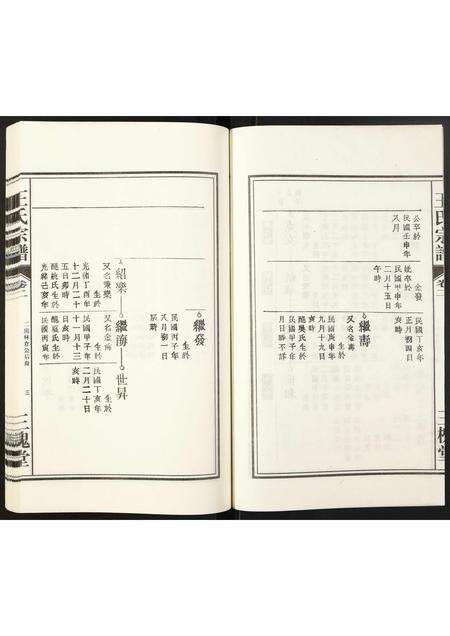 王氏宗譜
卷二
三槐堂
公卒於
民國壬申年
八月
妣卒於
民國甲申年
二月十五日
午時
全發
民國丁亥年
正月初四日
繼壽
又名金壽
生於
民國庚申年
九月十九日
亥時
配吳氏生於
月日時不詳
繼發
生於
民國丙子年
八月初一日
辰時
紹樂
繼海
世昇
又名秉樂
生於
光緒丁酉年
十二月二十
五日卯時
配姚氏生於
光緒己亥年
又名金海
生於
民國甲子年
十一月十三
日亥時
配厖氏生於
民國丙寅年
生於
民國丁亥年
二月二十日
亥時
王氏宗譜
卷二
三
三槐堂